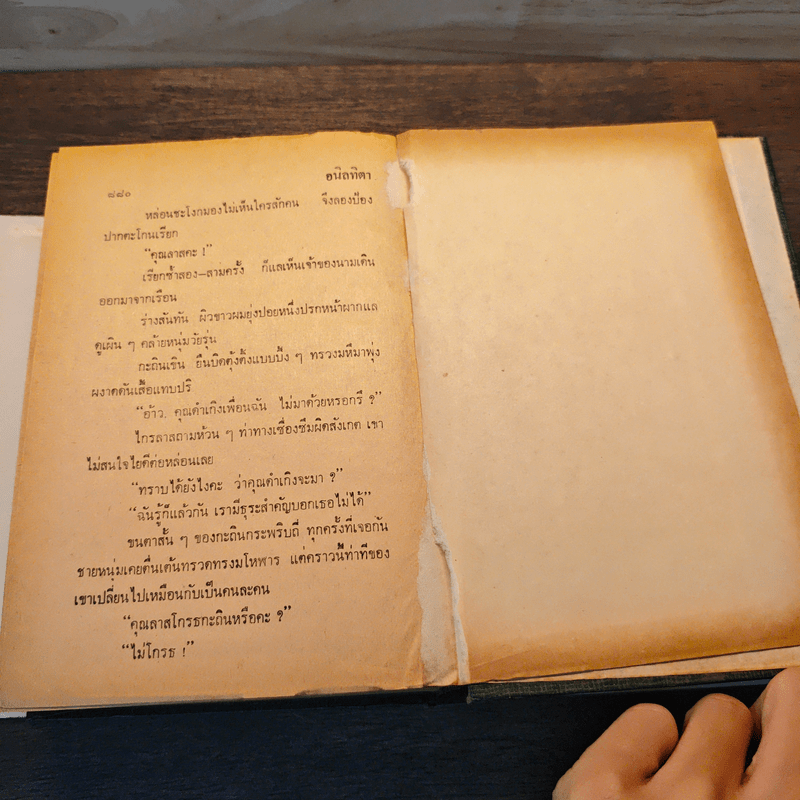 ๘๘๐ อนิลทิตา
หล่อนชะโงกมองไม่เห็นใครสักคน จึงลองป้อง
ปากตะโกนเรียก
“คุณลาสคะ !”
เรียกซ้ำสอง–สามครั้ง ก็แลเห็นเจ้าของนามเดิน
ออกมาจากเรือน
ร่างสันทัน ผิวขาวผมยุ่งปอยหนึ่งปรกหน้าผากแล
ดูเผิน ๆ คล้ายหนุ่มวัยรุ่น
กะถินเขิน ยืนบิดตุ้งติ้งแบบบึ้ง ๆ ทรวงมหึมาพุ่ง
ผงาดดันเสื้อแทบปริ
“อ้าว. คุณดำเกิงเพื่อนฉัน ไม่มาด้วยหรอกรึ ?”
ไกรลาสถามห้วน ๆ ท่าทางเซื่องซึมผิดสังเกต เขา
ไม่สนใจไยดีต่อหล่อนเลย
“ทราบได้ยังไงคะ ว่าคุณดำเกิงจะมา ?”
“ฉันรู้ก็แล้วกัน เรามีธุระสำคัญบอกเธอไม่ได้”
ขนตาสั้น ๆ ของกะถินกระพริบถี่ ทุกครั้งที่เจอกัน
ชายหนุ่มเคยตื่นเต้นทรวดทรงมโหฬาร แต่คราวนี้ท่าทีของ
เขาเปลี่ยนไปเหมือนกับเป็นคนละคน
“คุณลาสโกรธกะถินหรือคะ ?”
“ไม่โกรธ !”